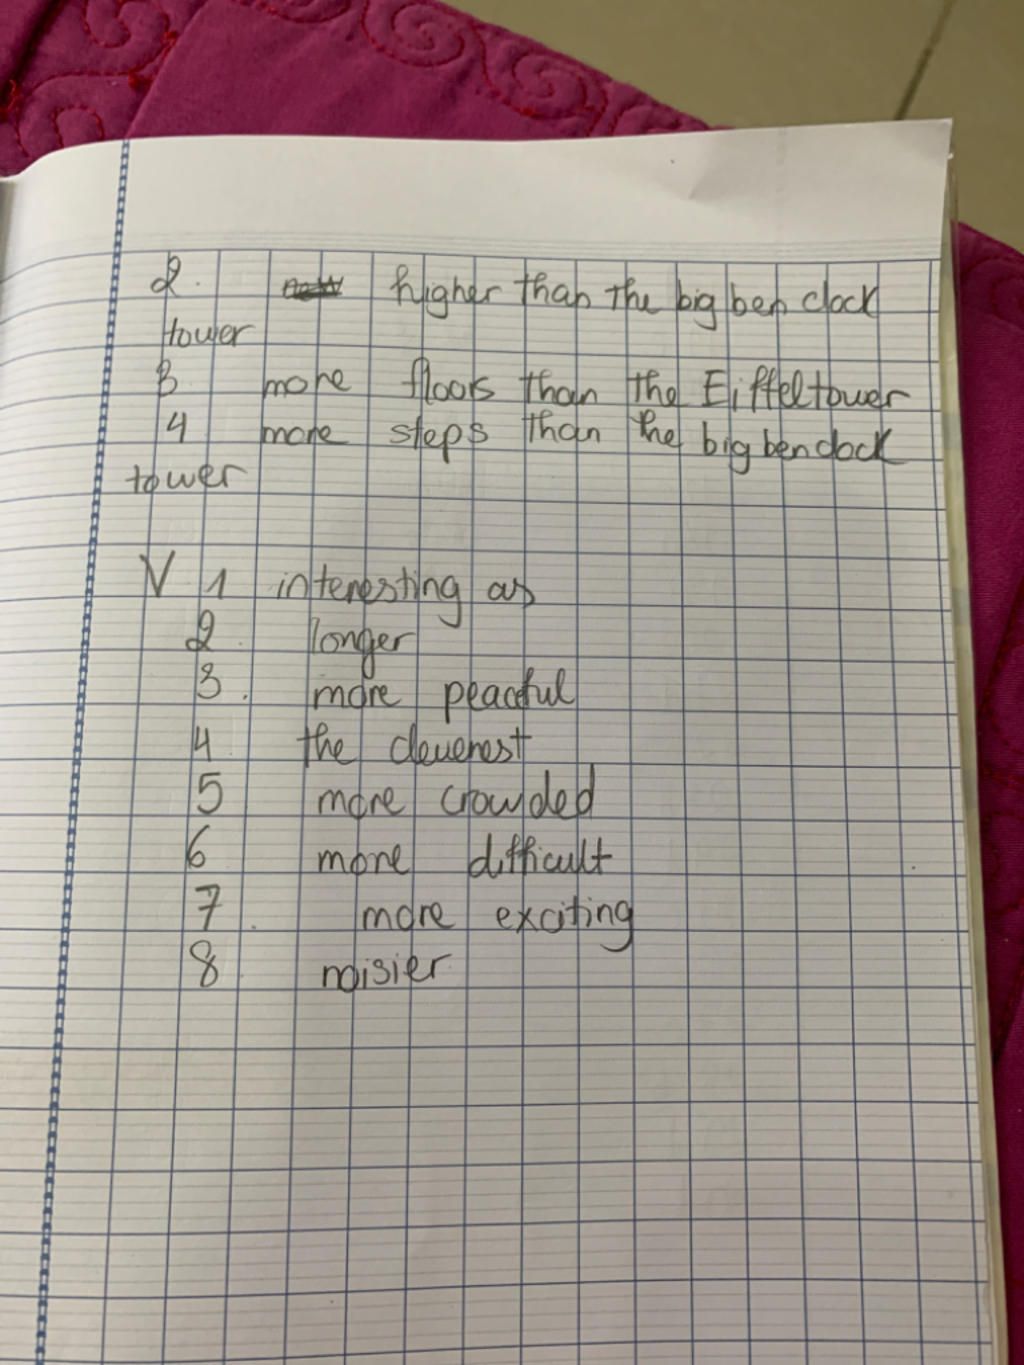 2. higher than the big ben clock
tower
3 more floors than the Eiffel tower
4 more steps than the big ben clock
tower
V 1 interesting as
2 longer
3. more peaceful
4 the cleverest
5 more crowded
6 more difficult
7. more exciting
8 noisier